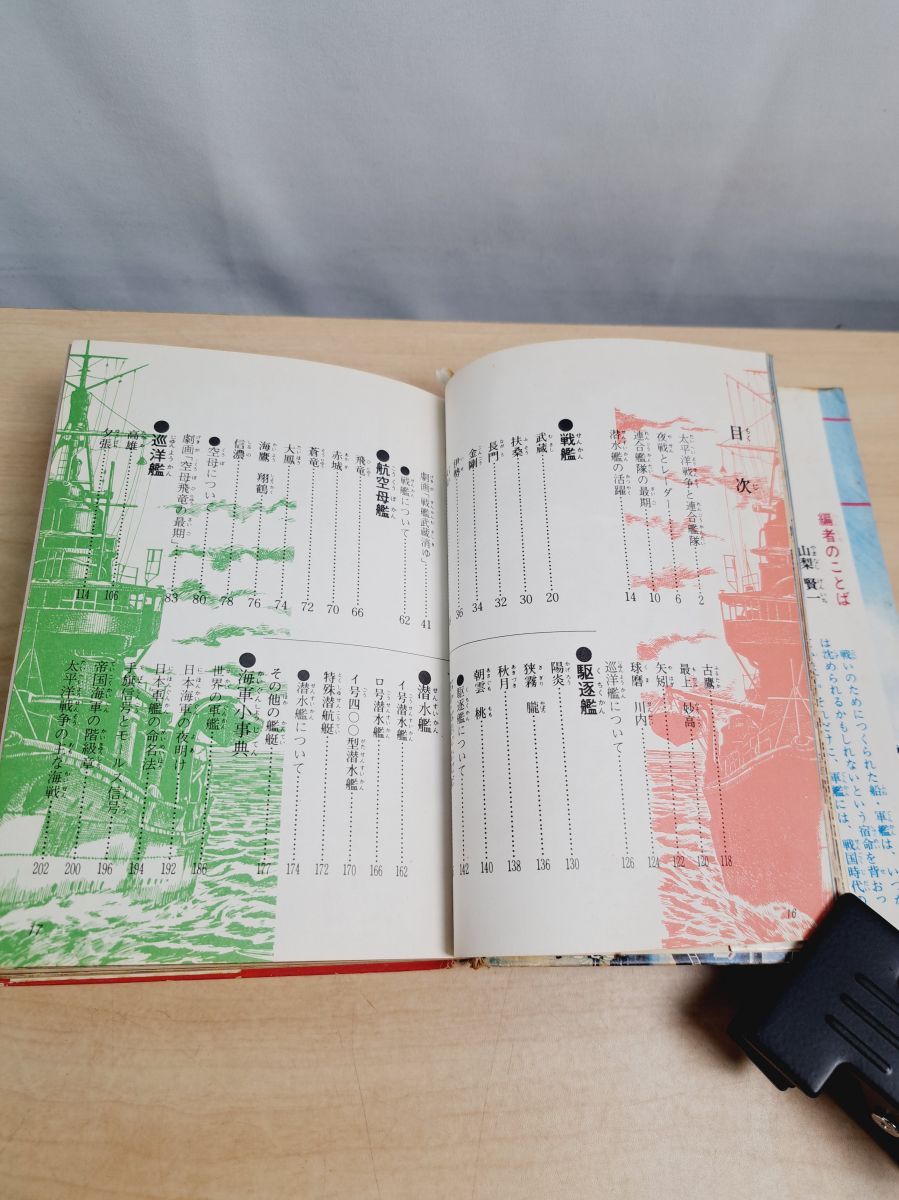 目次
太平洋戦争と連合艦隊……2
夜戦とレーダー……6
連合艦隊の最期……10
潜水艦の活躍……14
●戦艦
武蔵……20
扶桑……30
長門……32
金剛……34
伊勢……36
劇画「戦艦武蔵消ゆ」……41
●戦艦について……62
●航空母艦
飛竜……66
赤城……70
蒼竜……72
大鳳……74
海鷹 翔鶴……76
信濃……78
●空母について……80
劇画「空母飛竜の最期」……83
●巡洋艦
高雄……106
夕張……114
古鷹……118
最上 妙高……120
矢矧……122
球磨 川内……124
巡洋艦について……126
●駆逐艦
陽炎……130
狭霧 朧……136
秋月……138
朝雲 桃……140
●駆逐艦について……142
●潜水艦
イ号潜水艦……162
ロ号潜水艦……166
イ号四〇〇型潜水艦……170
特殊潜航艇……172
●潜水艦について……174
その他の艦艇……177
●海軍小事典
世界の軍艦……186
日本海軍の夜明け……192
日本軍艦の命名法……194
手旗信号とモールス信号……196
帝国海軍の階級章……200
太平洋戦争の主な海戦……202
16
17
編者のことば
山梨賢一
戦いのためにつくられた船・軍艦は、いつか
は沈められるかもしれないという宿命を背おっ
軍艦には、戦国時代の